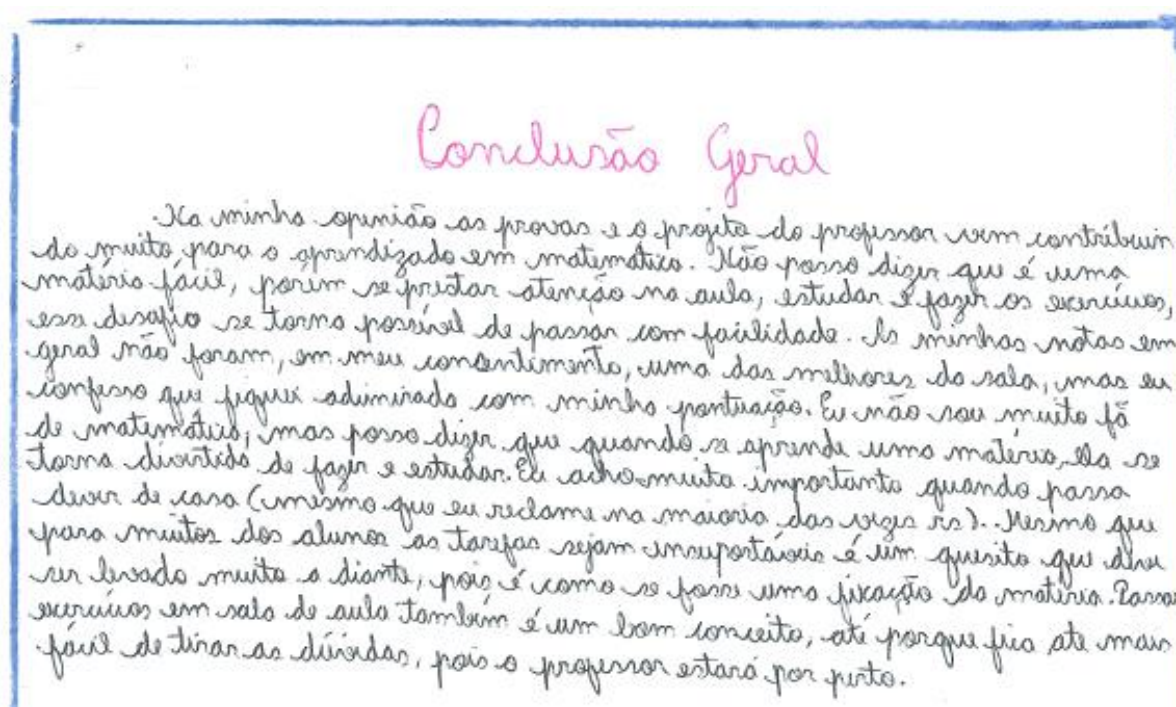 Conclusão Geral
Na minha opinião as provas e o projeto do professor vem contribuin
do muito para o aprendizado em matemática. Não posso dizer que é uma
matéria fácil, porém se prestar atenção na aula, estudar e fazer os exercícios,
esse desafio se torna possível de passar com facilidade. As minhas notas em
geral não foram, em meu consentimento, uma das melhores da sala, mas eu
confesso que fiquei adimirada com minha pontuação. Eu não sou muito fã
de matemática, mas posso dizer que quando se aprende uma matéria, ela se
torna divertida de fazer e estudar. Eu acho muito importante quando passa
dever de casa (mesmo que eu reclame na maioria das vezes rs). Mesmo que
para muitos dos alunos as tarefas sejam insuportáveis é um quesito que deve
ser levado muito a diante, pois é como se fosse uma fixação da matéria. Passar
exercícios em sala de aula também é um bom conceito, até porque fica ate mais
fácil de tirar as dúvidas, pois o professor estará por perto.